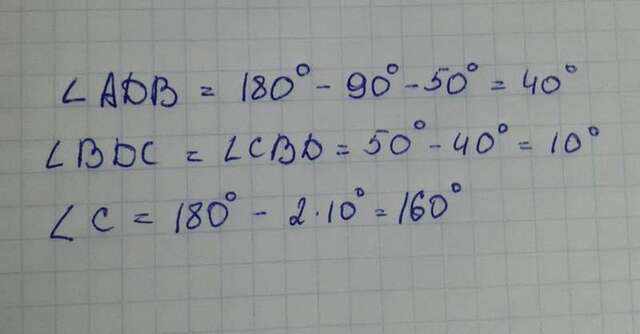 ∠ADB = 180° - 90° - 50° = 40°
∠BDC = ∠CBD = 50° - 40° = 10°
∠C = 180° - 2·10° = 160°